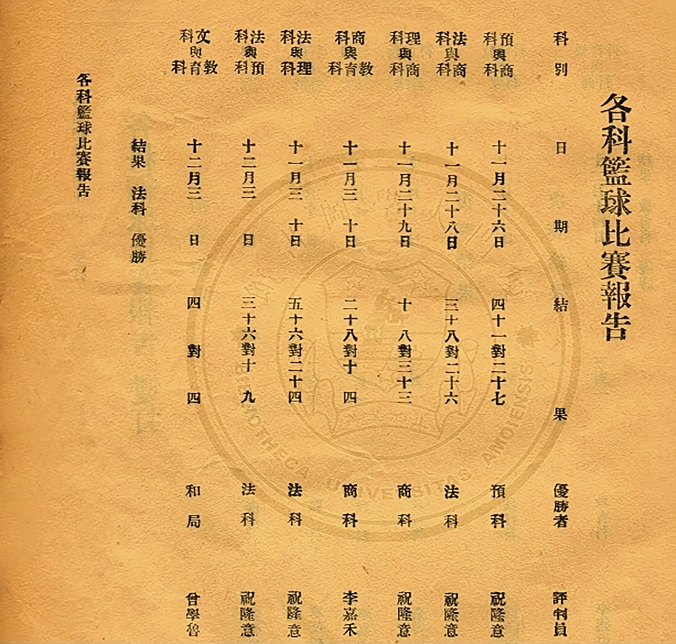 各科籃球比賽報告
科別 日期 結果 優勝者 評判員
預科與商科 十一月二十六日 四十一對二十七 預科 祝隆意
法科與商科 十一月二十八日 三十八對二十六 法科 祝隆意
理科與商科 十一月二十九日 十八對三十三 商科 祝隆意
商科與教育科 十一月三十日 二十八對十四 商科 李嘉禾
法科與理科 十一月三十日 五十六對二十四 法科 祝隆意
法科與預科 十二月三日 三十六對十九 法科 祝隆意
文科與教育科 十二月三日 四對四 和局 曾學魯
結果 法科 優勝
各科籃球比賽報告
AMOIENSIS